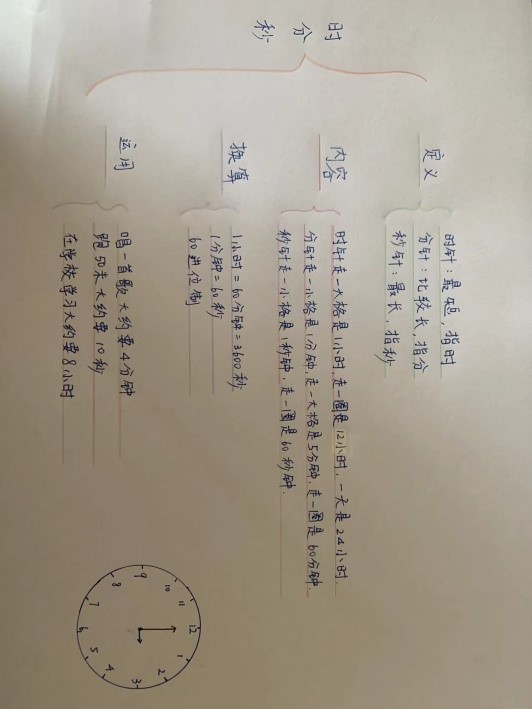 时
分
秒
定义
时针：最短，指时
分针：比较长，指分
秒针：最长，指秒
内容
时针走一大格是1小时，走一圈是12小时，一天是24小时．
分针走一小格是1分钟，走一大格是5分钟，走一圈是60分钟．
秒针走一小格是1秒钟，走一圈是60秒钟．
换算
1小时=60分钟=3600秒
1分钟=60秒
60进位制
运用
唱一首歌大约要4分钟
跑50米大约要10秒
在学校学习大约要8小时
12
1
2
3
4
5
6
7
8
9
10
11